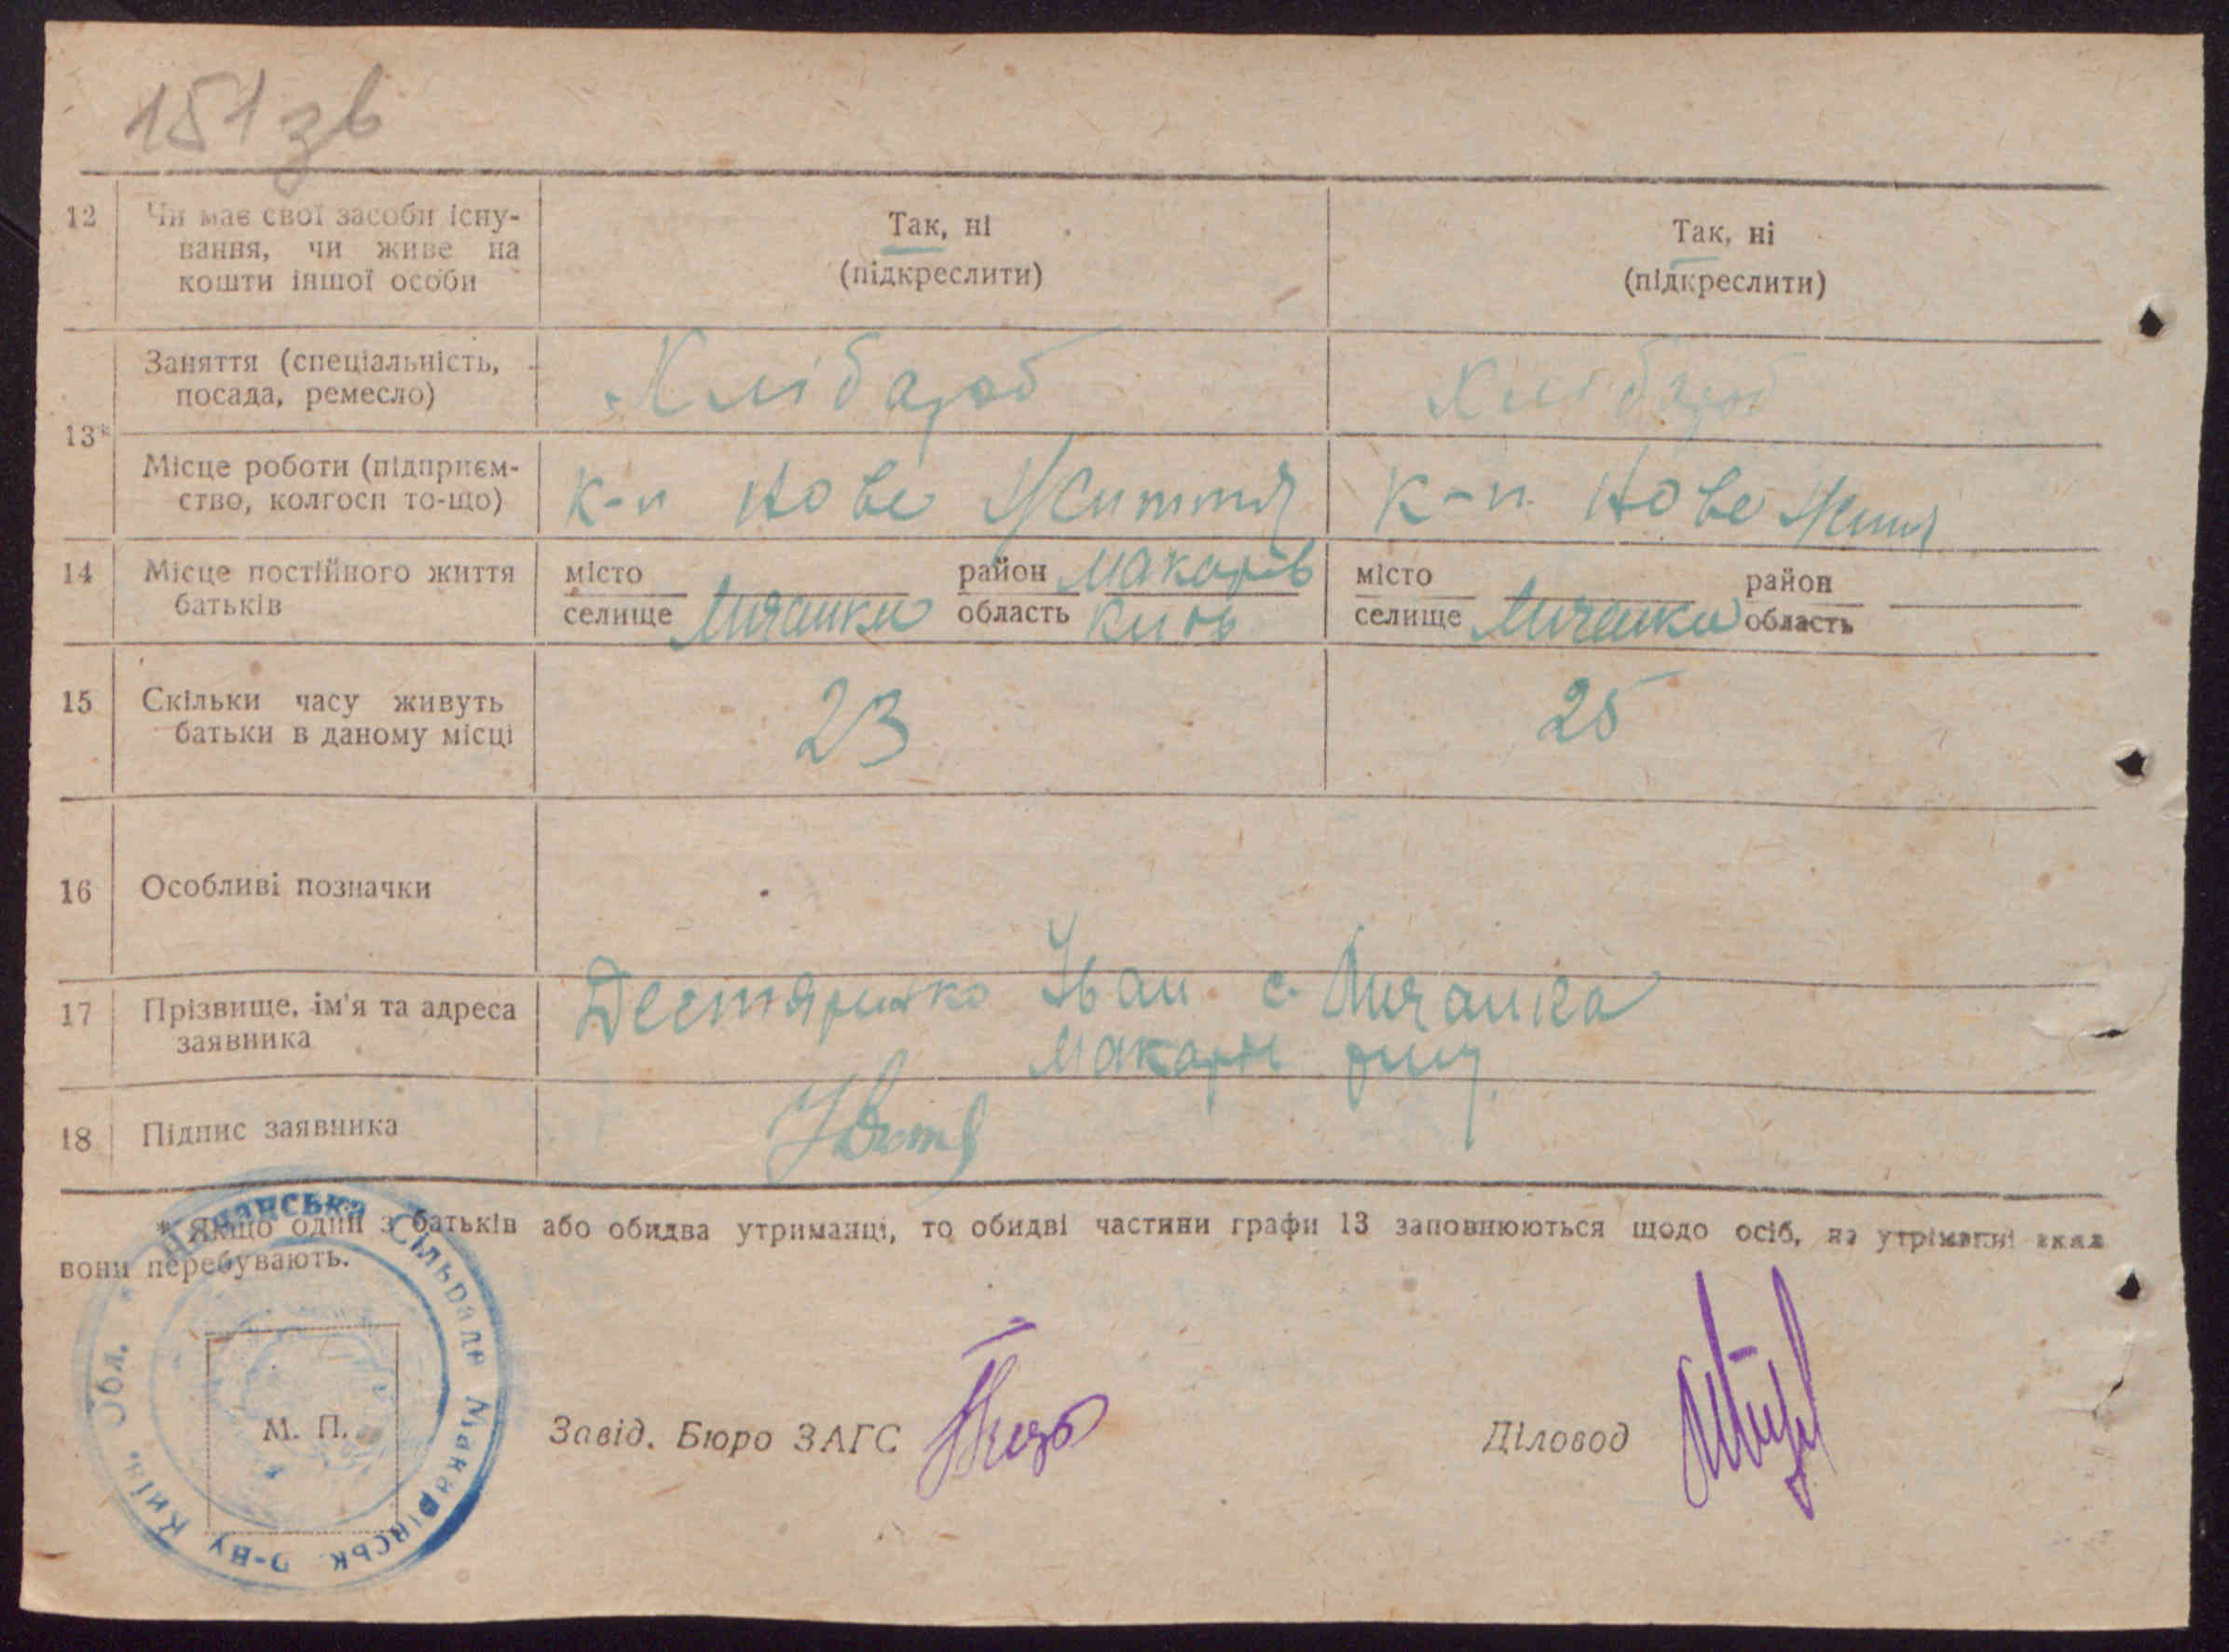 151 зв
12 Чи має свої засоби існу-
вання, чи живе на
кошти іншої особи
Так, ні
(підкреслити)
Так, ні
(підкреслити)
13*
Заняття (спеціальність,
посада, ремесло)
Хлібароб
Хлібароб
Місце роботи (підприєм-
ство, колгосп то-що)
к-п Нове Життя
к-п Нове Життя
14 Місце постійного життя
батьків
місто
селище Личанка
район Макарів
область Київ
місто
селище Личанка
район
область
15 Скільки часу живуть
батьки в даному місці
23
25
16 Особливі позначки
17 Прізвище, ім'я та адреса
заявника
Іван с. Личанка
Макарів
18 Підпис заявника
* Якщо один з батьків або обидва утриманці, то обидві частини графи 13 заповнюються щодо осіб, на утриманні яких
вони перебувають.
М. П.
Завід. Бюро ЗАГС
Діловод
Сільрада Макарівськ р-ну Київ. Обл.